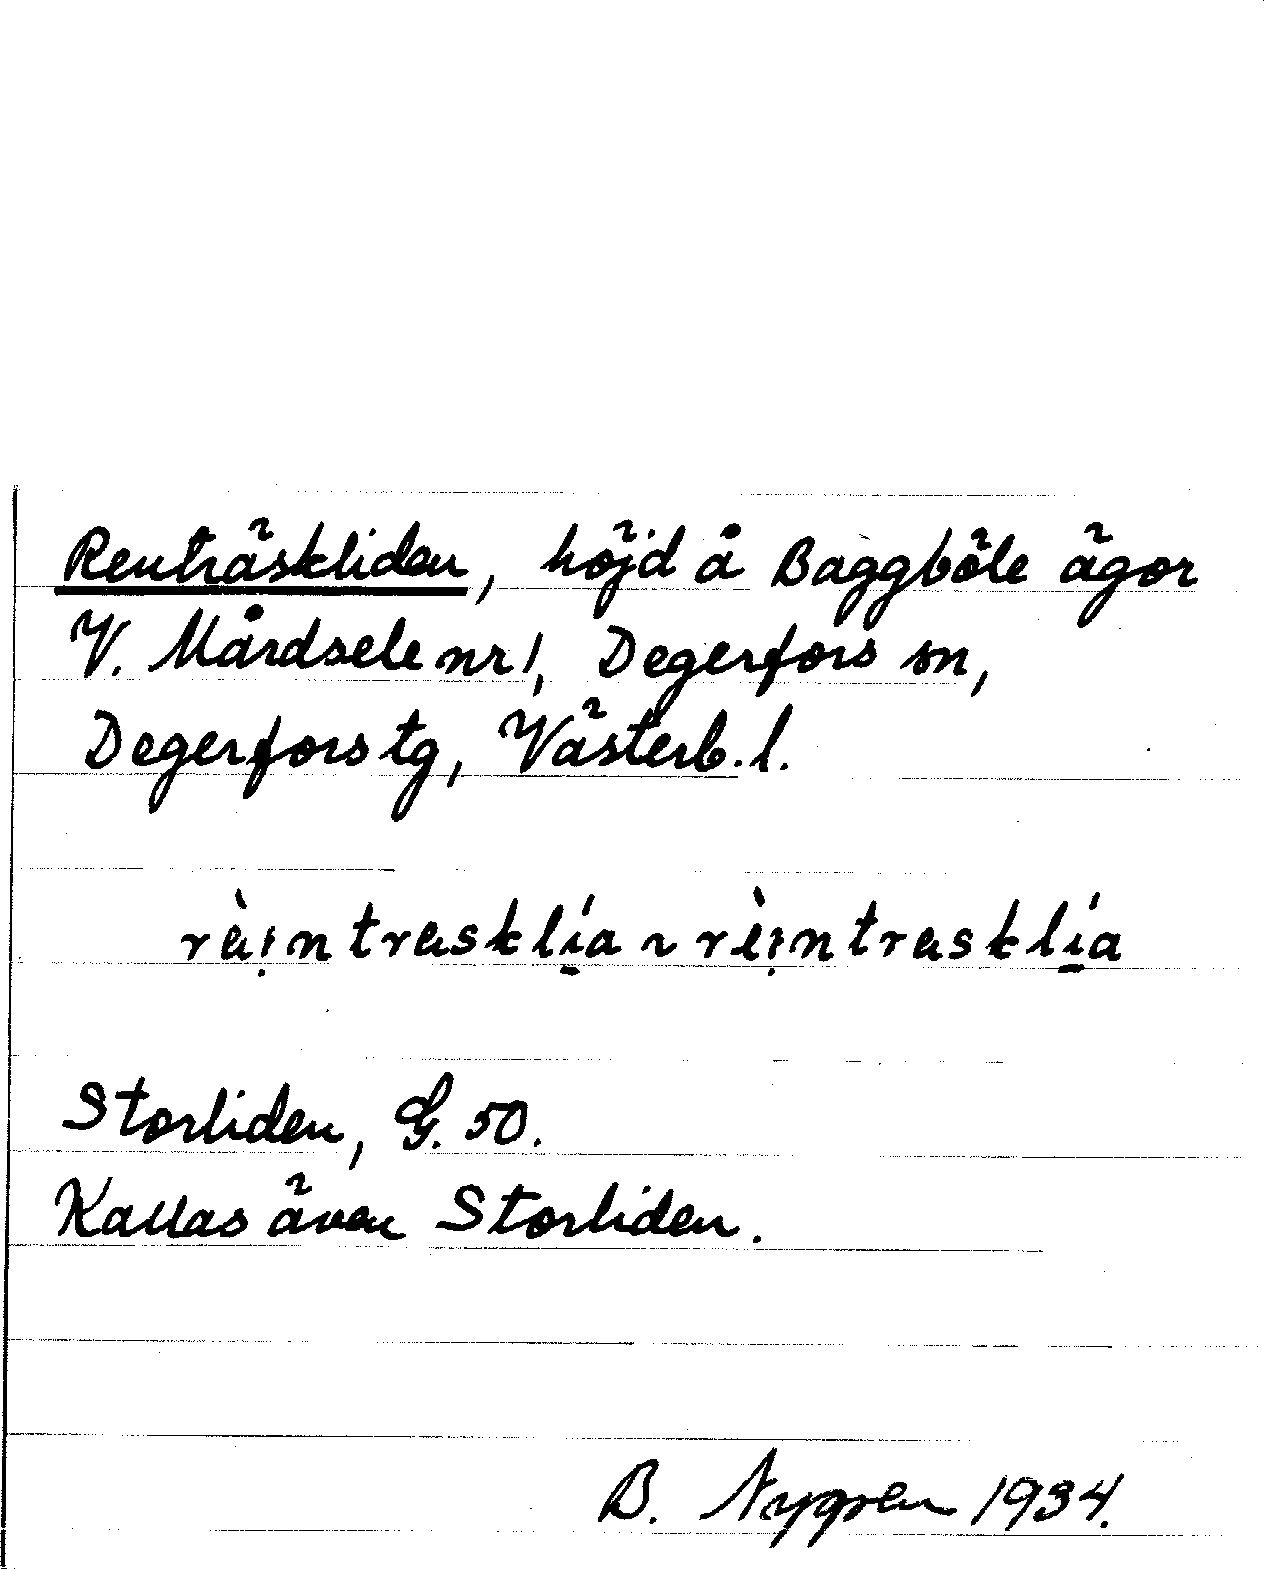 Renträskliden, höjd å Baggböle ägor
V. Mårdsele nr 1, Degerfors sn,
Degerfors tg, Västerb. l.
ræ̀i̩ntræsklía ~ rèi̩ntræsklía
Storliden, G. 50.
Kallas även Storliden.
B. Nygren 1934.